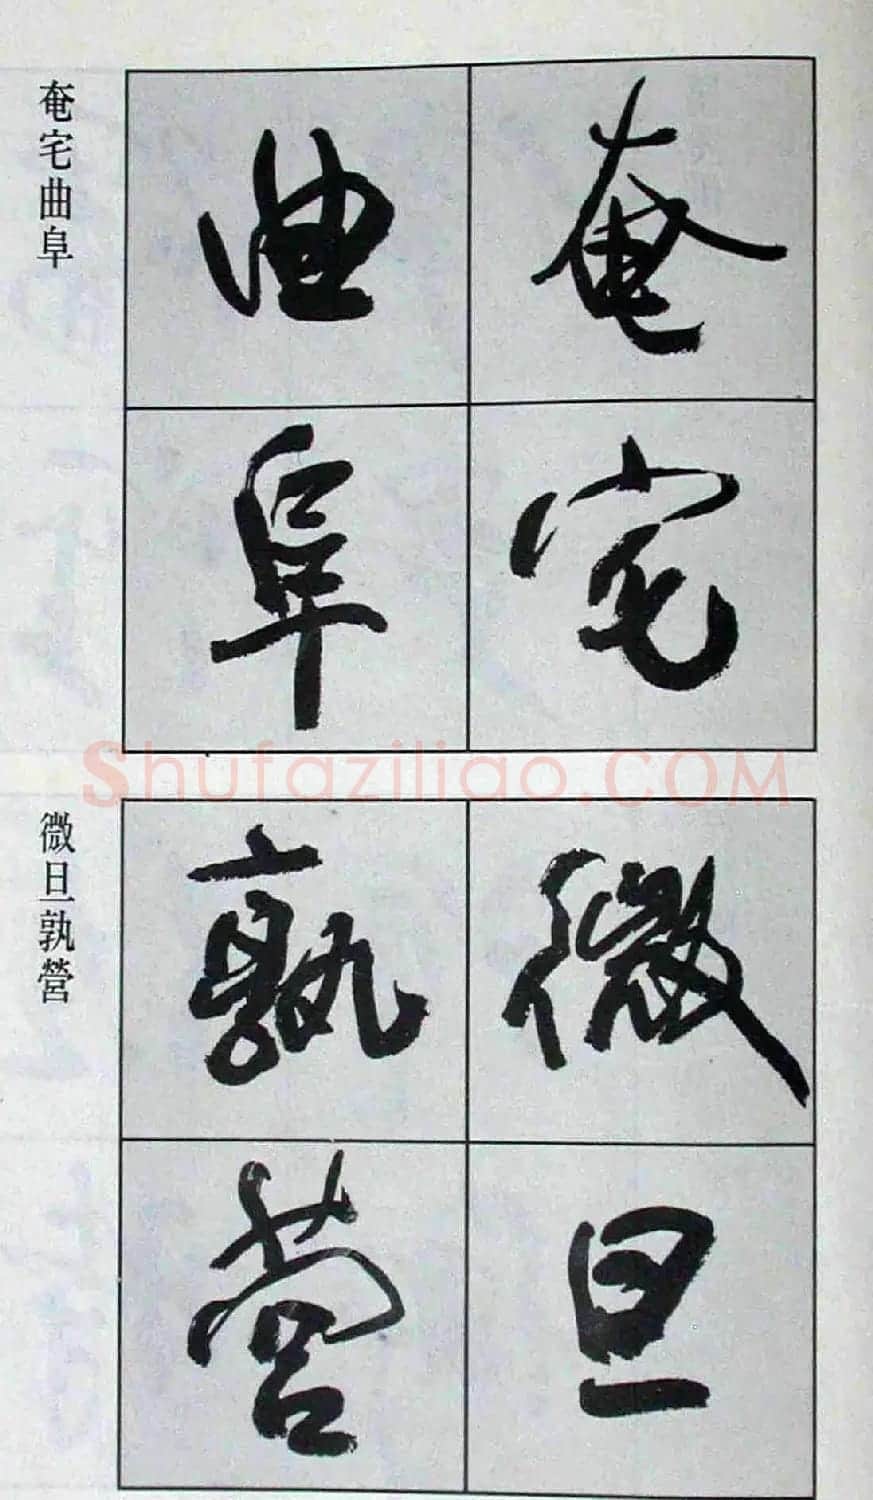 奄宅
曲阜
奄宅曲阜
Shufaziliao.COM
微旦
孰營
微旦孰營